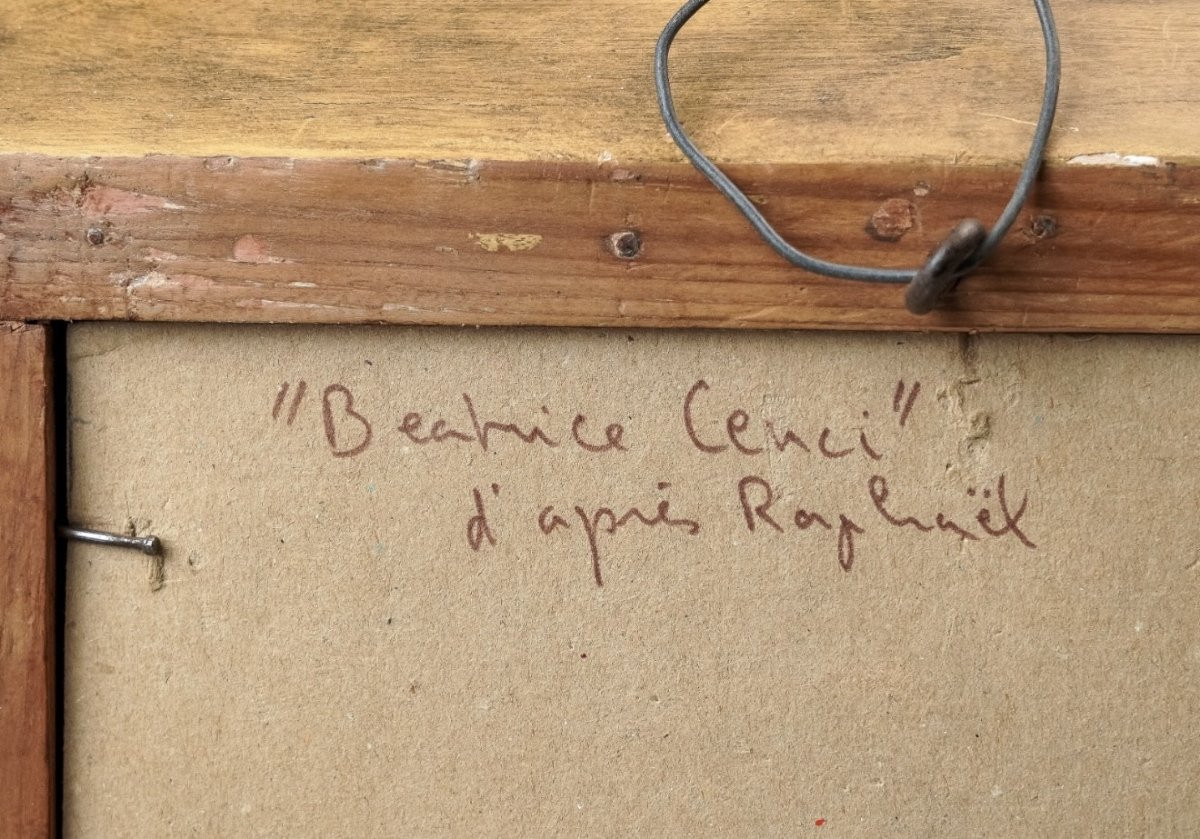 "Beatrice Cenci"
d'après Raphaël